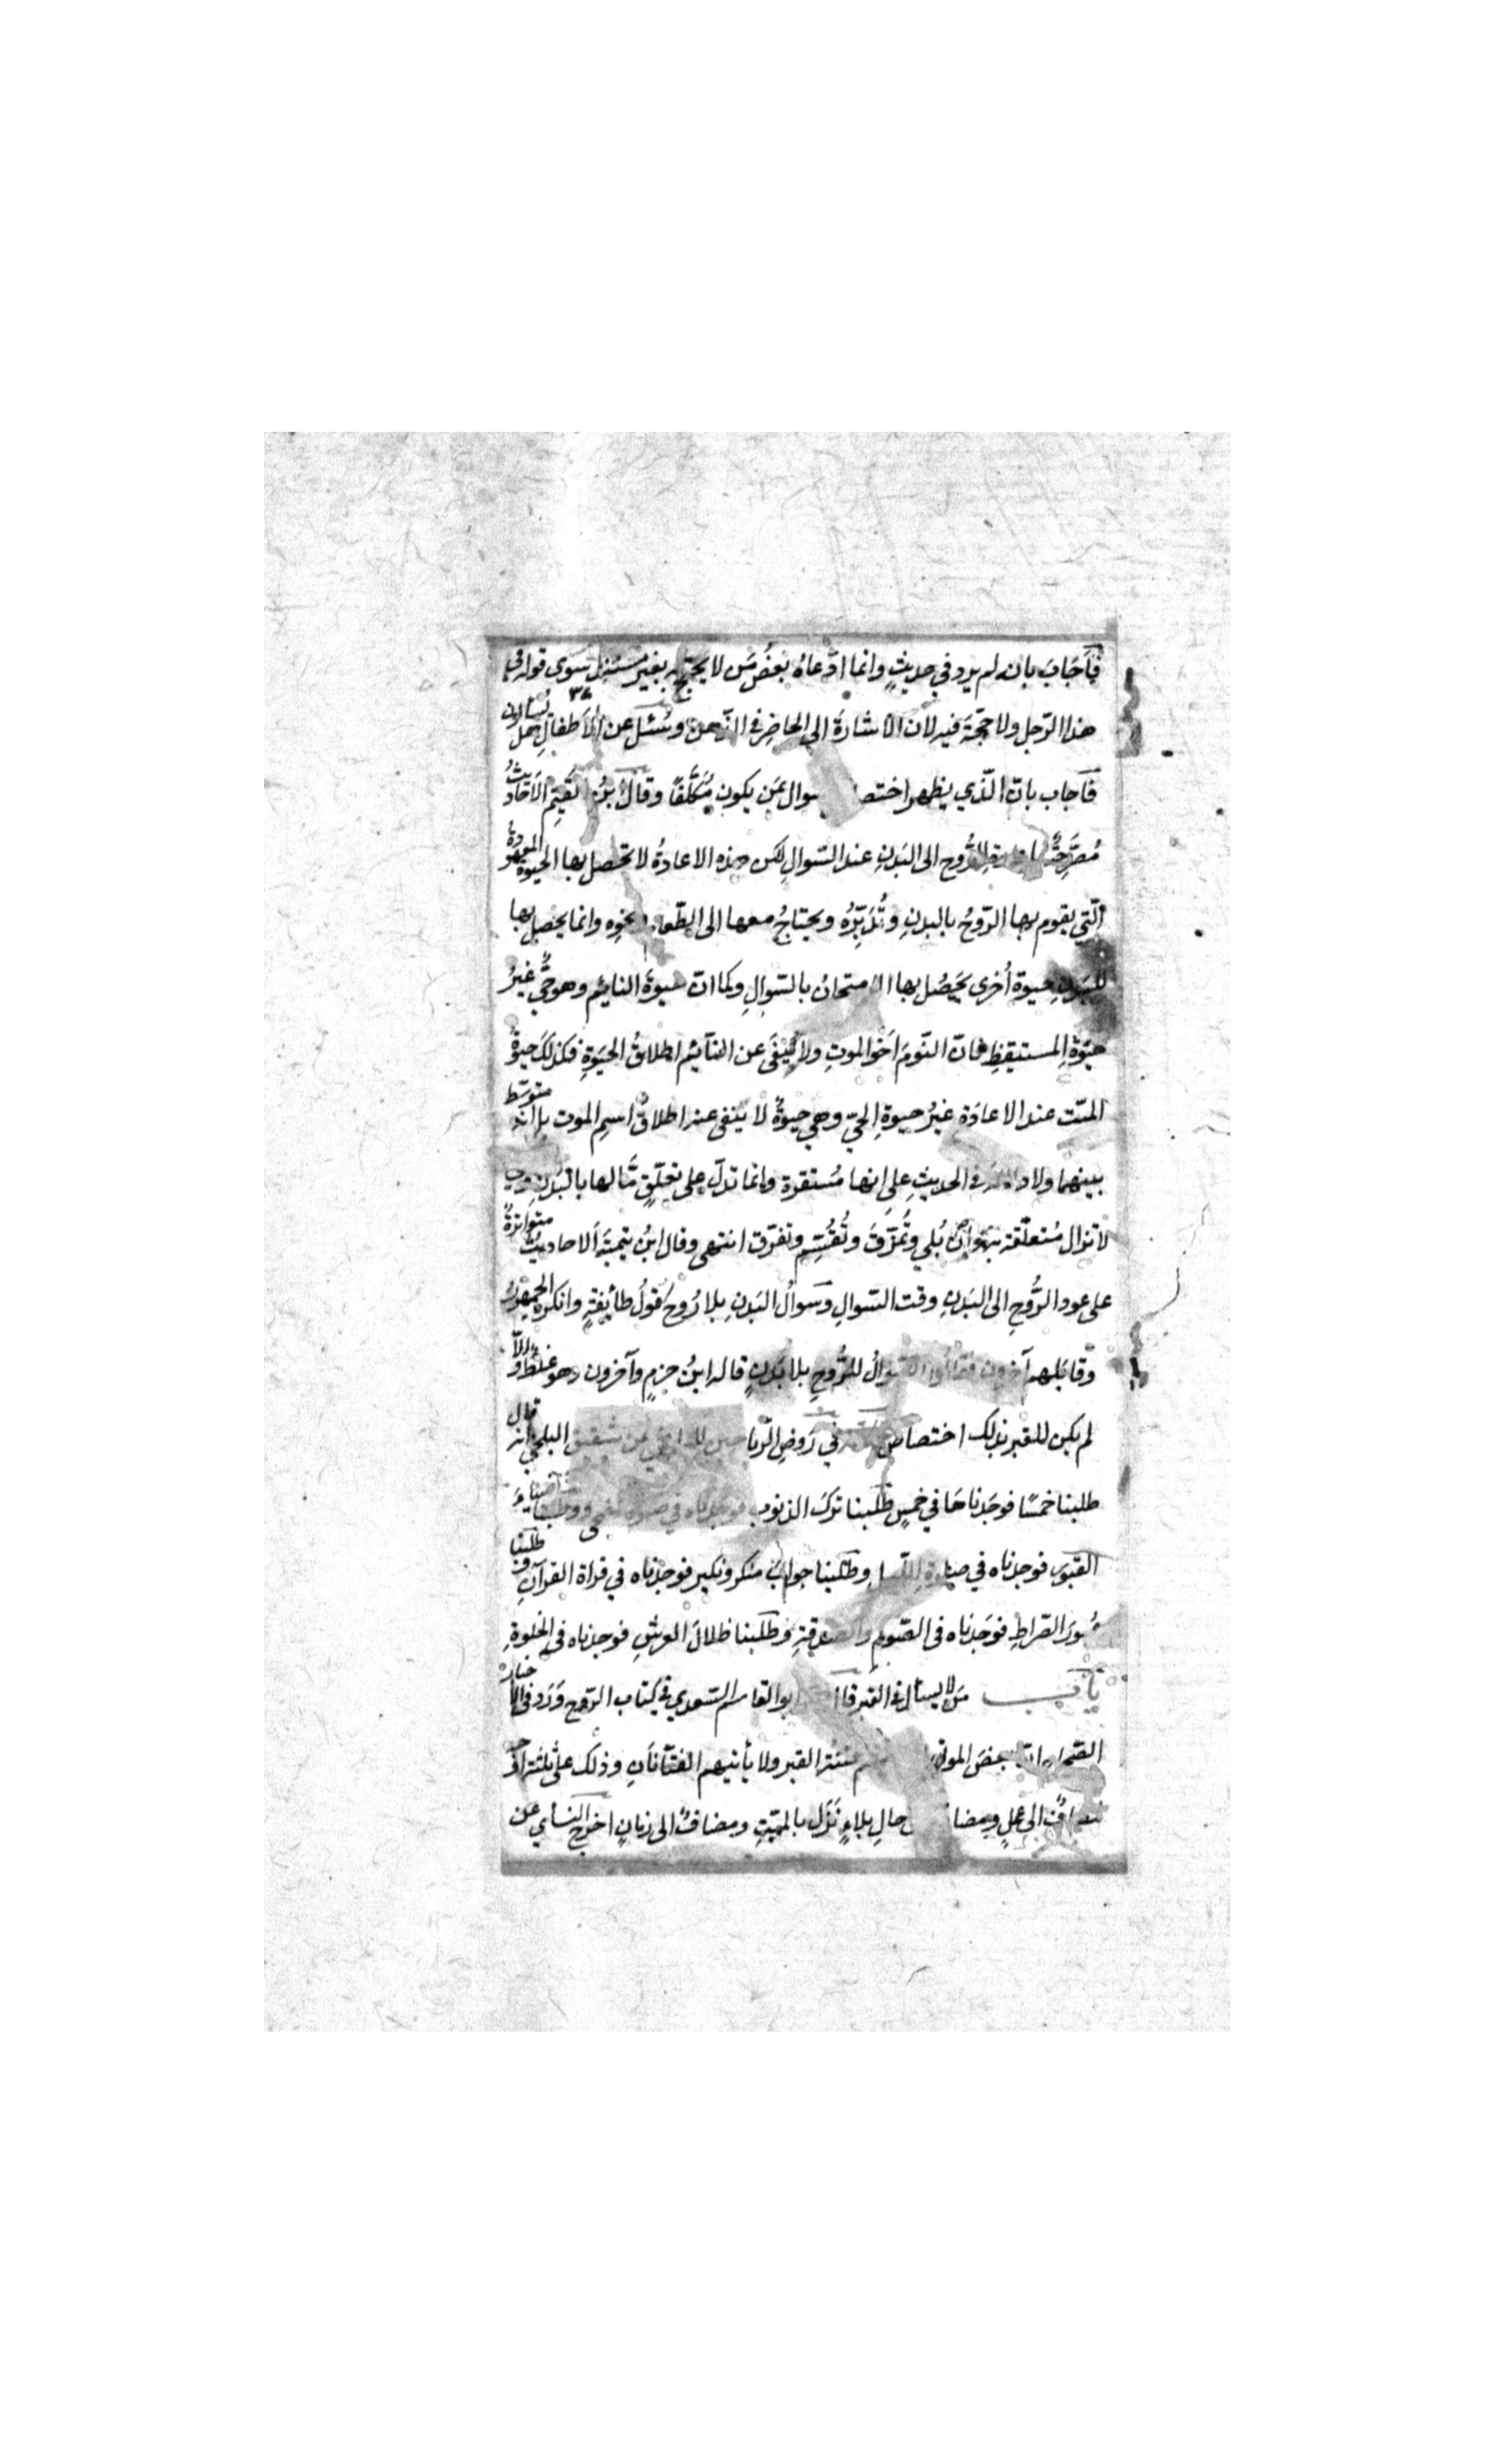 فَاَجَابَ بانه لم يرد في حديثٍ وانما ادّعاهُ بعضُ مَن لا يحتج به بغير مستند سَوى قوله في
هذا الرّجل ولا حجّةَ فيه لان الاشارةَ الى الحاضِر في الذهن وسُئل عن الاَطفالِ هل يُسْاَلون
فاَجاب بانّ الّذي يظهر اختصا السوال بمَن يكون مُكلَّفًا وقالَ ابنُ القيّمِ الاَحَاديثُ
مُصَرّحَةٌ باعادة الرُّوح الى البَدنِ عند السّوالِ لكن هذه الاعادةُ لا تحصل بها الحيوةُ المعهودةُ
الّتي يقوم بها الرّوحُ بالبدنِ وتُدَبِّرُه ويحتاجُ معها الى الطّعام ونحوِه وانما يحصل بها
للبَدَنِ حيوة اُخرى يَحصُل بها الامتحانُ بالسّوالِ وكما انّ حيوةَ النايم وهو حيٌّ غيرُ
حيٰوةِ المستيقظِ فانّ النّومَ اَخو الموتِ ولا يُنْفَى عن النآئم اطلاقُ الحيَوةِ فكذلكَ حيوةُ
الميّت عند الاعادَة غيرُ حيوةِ الحيّ وهي حيوةٌ لا ينفى عنه اطلاقُ اسمِ الموت بل انه متوسّط
بينهما ولا دلالةَ في الحديثِ على انها مُستقرة وانما تدلّ على تعلّقٍ مَّا لها بالبَدَنِ وهي
لا تزال مُتعلّقة به وان بُلي وتُمزّقَ وتُقُسِّم وتفرّق انتهى وقال ابنُ تيميّةَ الاحاديثُ متواترةٌ
على عود الرُّوحِ الى البَدنِ وقت السّوالِ وسَوالُ البَدنِ بلا رُوحٍ قولُ طآيفةٍ وانكره الجمهورُ
وقابَلهم آخرون فقالُوا السّوالُ للرُّوحِ بلا بَدنٍ قاله ابنُ حزمٍ وآخرون وهو غلطٌ والّا
لم يكن للقبر بذلك اختصاص في رَوض الرّياحين لليافعي عن شقيق البلخي انه قال
طلبنا خمسًا فوجَدناهَا في خمسٍ طلَبنا تركَ الذنوب فوجدناه في صلوة الضحى وطلبنا ضيآءَ
القبور فوجدناه في صلوةِ اللّيل وطلبنا جوابَ منكر ونكير فوجدناه في قراة القرآنِ وطلبنا
عُبورَ الصّراطِ فوجَدناه في الصّومِ والصدقةِ وطلَبنا ظلالَ العرشِ فوجدناه في الخلوةِ
باب مَن لا يسأل في القبر قال ابو القاسم السّعدي في كتاب الرّوح وَرَد في الاخبار
الصّحاح انّ بعضَ الموتى فتنة القبر ولا يأتيهم الفتّانانِ وذلك على ثلثة اوجه
مضافٌ الى عملٍ ومضاف حالِ بلاءٍ نَزَل بالميّتِ ومضافٌ الى زمانٍ اخرج النسأي عن